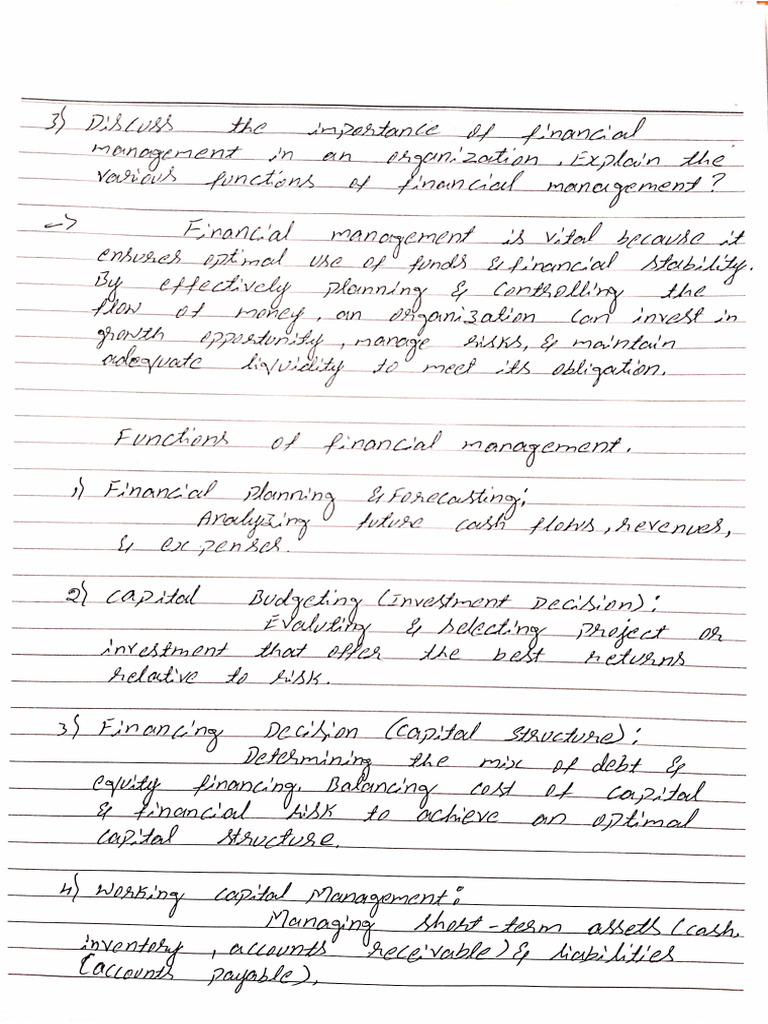 3) Discuss the importance of financial
management in an organization. Explain the
various functions of financial management?
→ Financial management is vital because it
ensures optimal use of funds & financial stability.
By effectively planning & controlling the
flow of money, an organization can invest in
growth opportunity, manage risks, & maintain
adequate liquidity to meet its obligation.
Functions of financial management.
1) Financial planning & Forecasting:
Analyzing future cash flows, revenues,
& expenses.
2) Capital Budgeting (Investment Decision):
Evaluting & selecting project or
investment that offer the best returns
relative to risk.
3) Financing Decision (Capital structure):
Determining the mix of debt &
equity financing. Balancing cost of capital
& financial risk to achieve an optimal
capital structure.
4) Working capital Management:
Managing short-term assets (cash,
inventory, accounts receivable) & liabilities
(accounts payable).